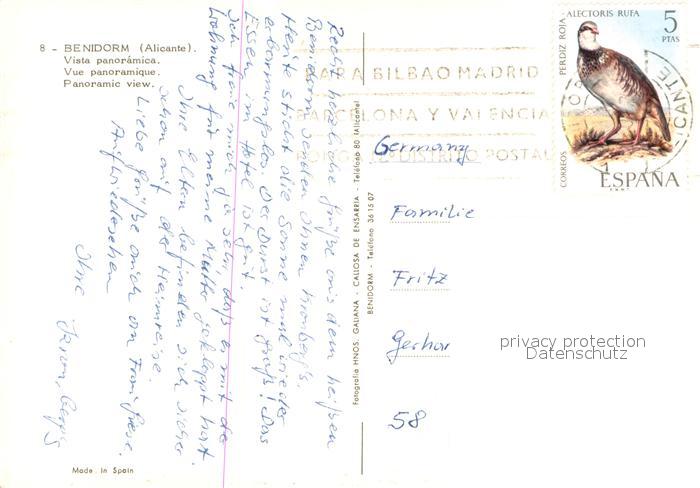 8 - BENIDORM (Alicante).
Vista panorámica.
Vue panoramique.
Panoramic view.
Recht herzliche Grüße aus dem heißen
Benidorm senden Ihnen
Heute sticht die Sonne mal wieder
erbarmungslos. Der Durst ist groß! Das
Essen im Hotel ist gut.
Ich freue mich ja sehr, daß es mit der
Wohnung für meine Mutter geklappt hat.
Ihre Eltern befinden sich sicher
schon auf der Heimreise.
Liebe Grüße auch an Frau
Aufwiedersehen
Ihre
Made in Spain
Fotografía HNOS. GALIANA - CALLOSA DE ENSARRIA - Teléfono 80 (Alicante)
BENIDORM - Teléfono 36 15 07
PARA BILBAO MADRID
BARCELONA Y VALENCIA
DISTRITO POSTAL
PERDIZ ROJA - ALECTORIS RUFA
5
PTAS
CORREOS
ESPAÑA
ALICANTE
Germany
Familie
Fritz
Gerhar
58
privacy protection
Datenschutz